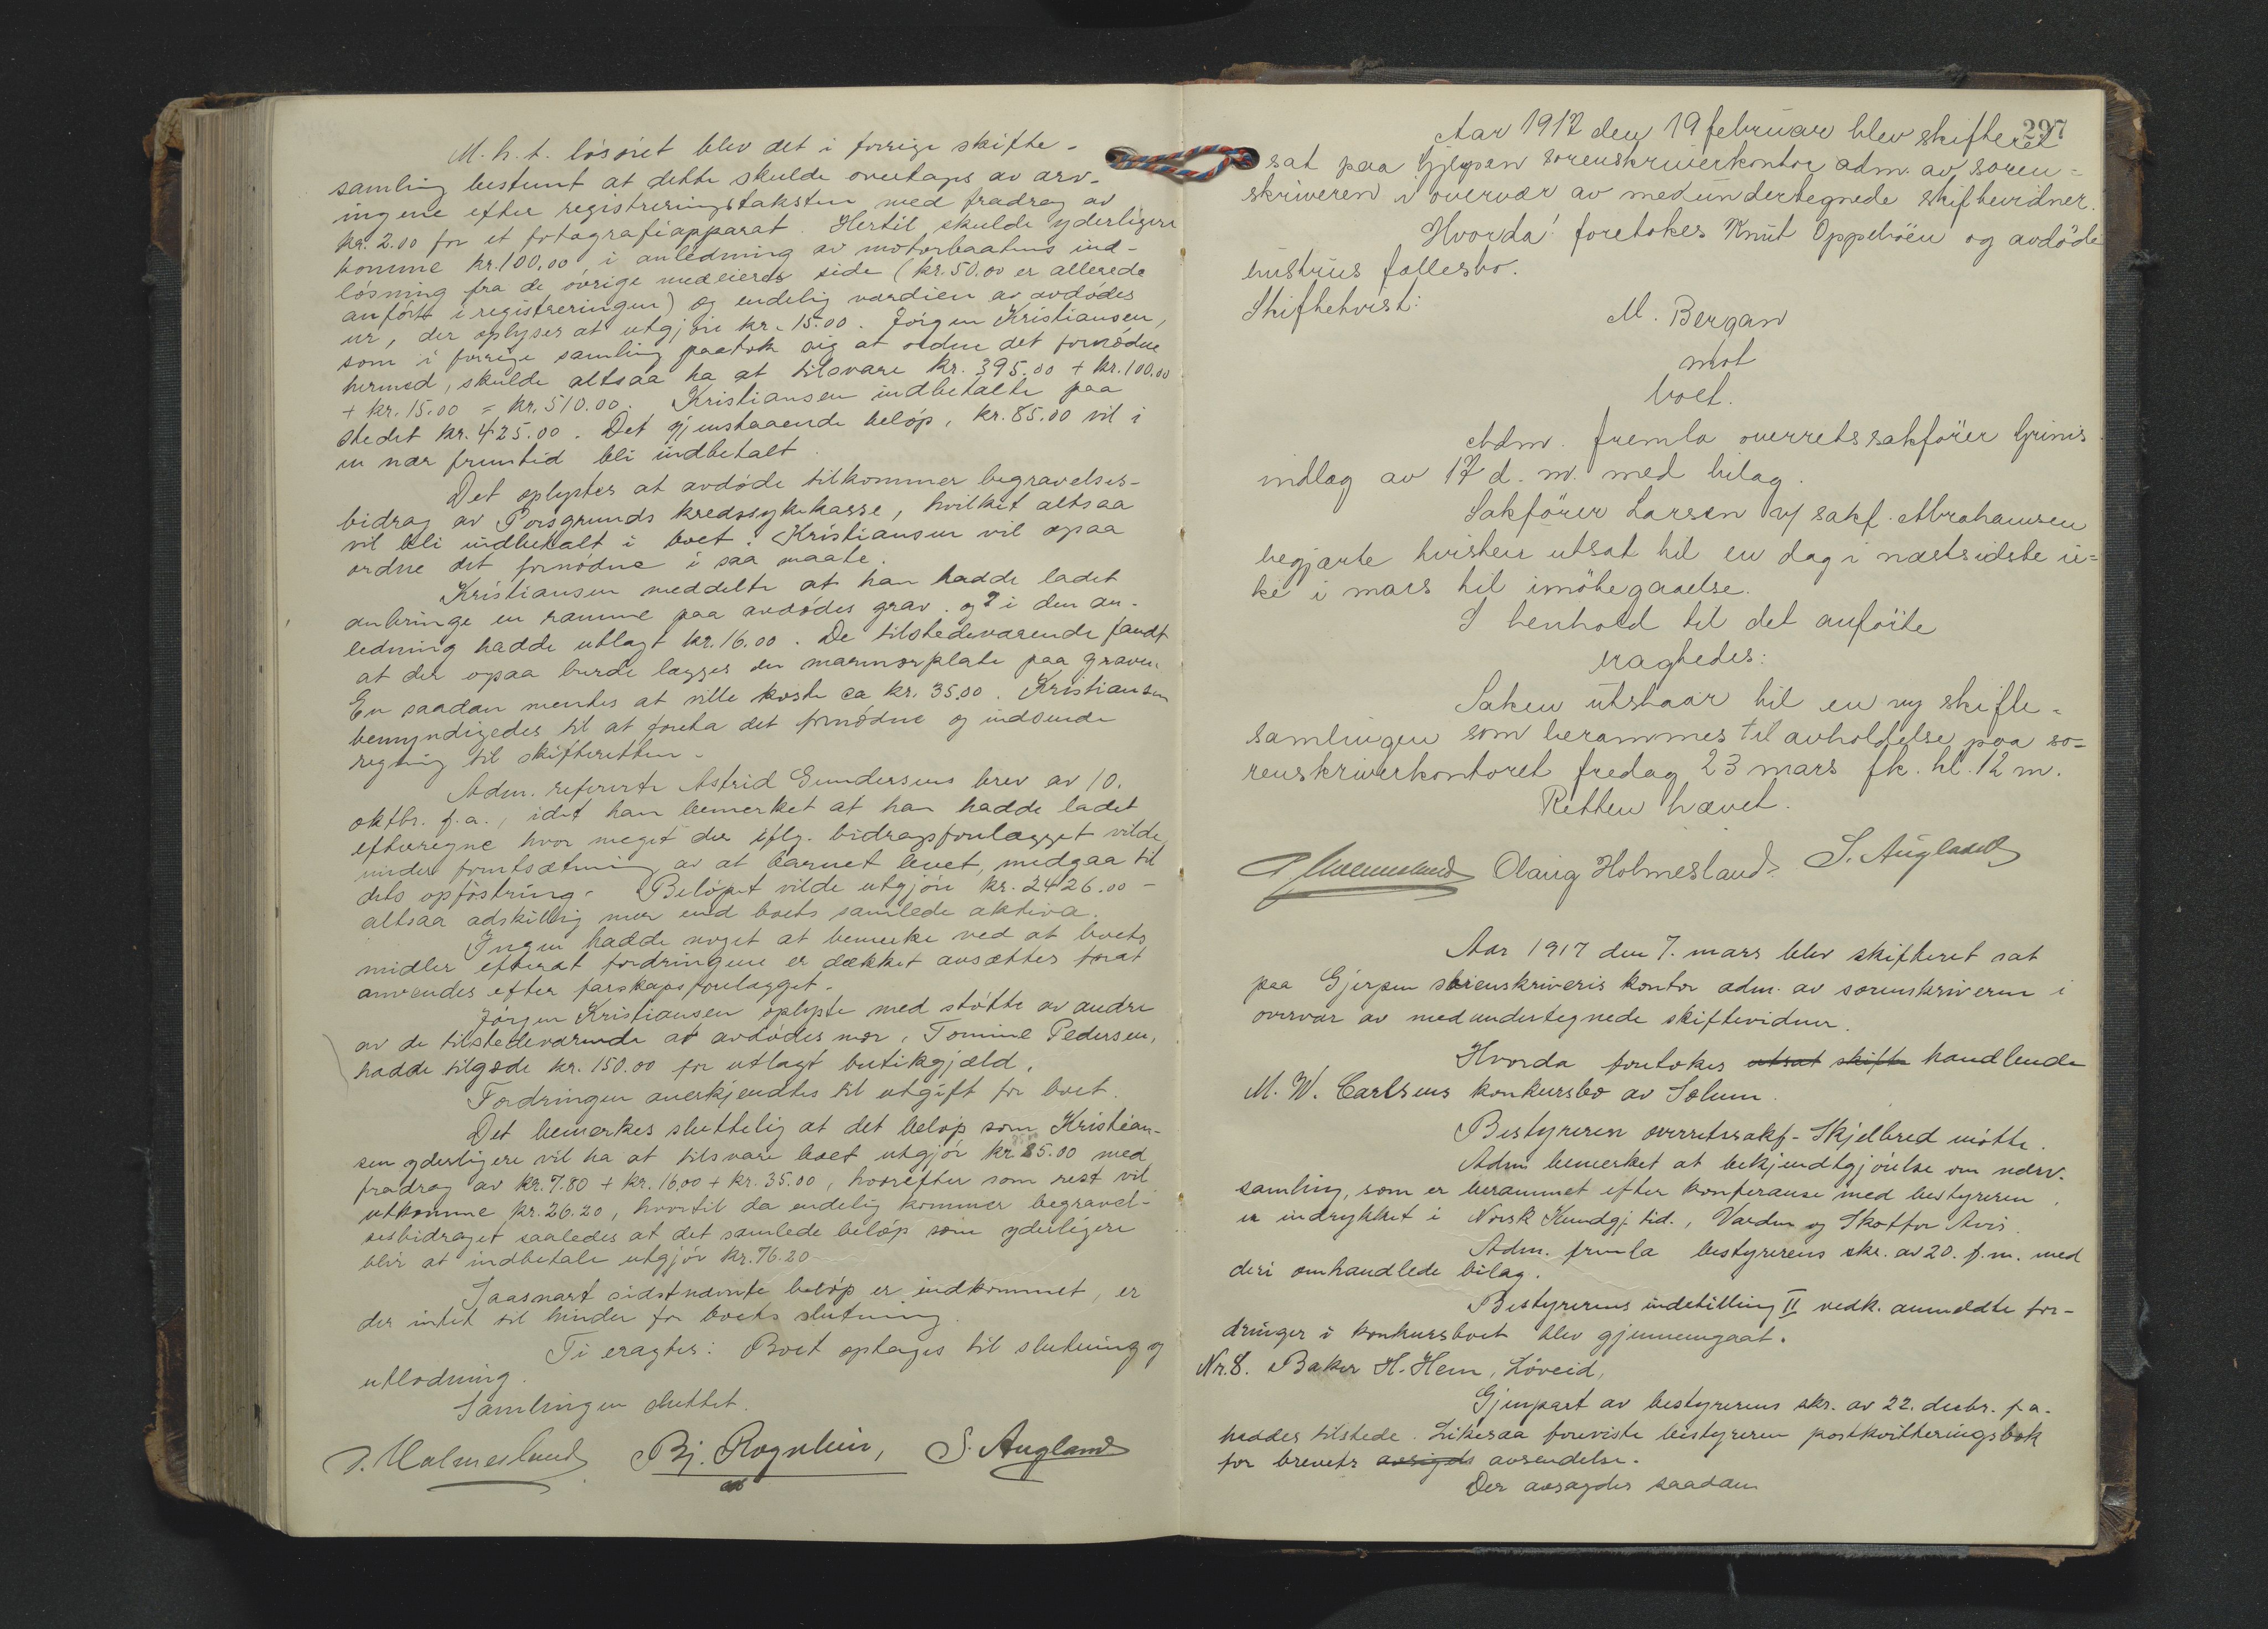 M. h. t. løsøret blev det i forrige skifte-
samling bestemt at dette skulde overtages av arv-
ingene efter registreringstaksten med fradrag av
kr. 2.00 for et fotografiapparat. Hertil skulde yderligere
komme kr. 100.00 i anledning av motorbaatens ind-
løsning fra de øvrige medeieres side (kr. 50.00 er allerede
anført i registreringen) og endelig værdien av avdødes
ur, der oplyses at utgjøre kr. 15.00. Jörgen Kristiansen,
som i forrige samling paatok sig at ordne det fornødne
hermed, skulde altsaa ha at tilsvare kr. 395.00 + kr. 100.00
+ kr. 15.00 = kr. 510.00. Kristiansen indbetalte paa
stedet kr. 425.00. Det gjenstaaende beløp, kr. 85.00 vil i
en nær fremtid bli indbetalt.
Det oplystes at avdøde tilkommer begravelses-
bidrag av Porsgrunds kredssykekasse, hvilket altsaa
vil bli indbetalt i boet. Kristiansen vil ogsaa
ordne det fornødne i saa maate.
Kristiansen meddelte at han hadde ladet
anbringe en ramme paa avdødes grav og i den an-
ledning hadde utlagt kr. 16.00. De tilstedeværende fandt
at der ogsaa burde lægges en marmorplate paa graven.
En saadan mentes at ville koste ca kr. 35.00. Kristiansen
bemyndigedes til at foreta det fornødne og indsende
regning til skifteretten.
Adm. refererte Astrid Gundersens brev av 10.
oktbr. f.a., idet han bemerket at han hadde ladet
efterregne hvor meget der iflg. bidragsforelægget vilde,
under forutsætning av at barnet levet, medgaa til
dets opfostring. Beløpet vilde utgjøre kr. 2426.00 -
altsaa adskillig mer end boets samlede aktiva.
Ingen hadde noget at bemerke ved at boets
midler efterat fordringene er dækket avsættes forat
anvendes efter farskapsforelægget.
Jörgen Kristiansen oplyste med støtte av andre
av de tilstedeværende at avdødes mor, Tomine Pedersen,
hadde tilgode kr. 150.00 for utlagt butikgjæld.
Fordringen anerkjendtes til utgift for boet.
Det bemerkes sluttelig at det beløp som Kristian-
sen yderligere vil ha at tilsvare boet utgjør kr. 85.00 med
fradrag av kr. 7.80 + kr. 16.00 + kr. 35.00, hvorefter som rest vil
utkomme kr. 26.20, hvortil da endelig kommer begravel-
sesbidraget saaledes at det samlede beløp som yderligere
blir at indbetale utgjør kr. 76.20
Saasnart sidstnævnte beløp er indkommet, er
der intet til hinder for boets slutning.
Ti eragtes: Boet optages til slutning og
utlodning.
Samlingen sluttet.
P. Holmesland Bj. Rognlien, S. Augland
297
Aar 1917 den 19 februar blev skifteret
sat paa Gjerpen sorenskriverkontor adm. av soren=
skriveren i overvær av medundertegnede skiftevidner.
Hvorda! foretokes Knut Oppebøen og avdøde
hustrus fællesbo.
Skiftetvist:
M. Bergan
mot
boet.
Adm. fremla overretssakfører Grinis
indlæg av 17 d. m. med bilag.
Sakfører Larsen v/ sakf. Abrahamsen
begjærte tvisten utsat til en dag i næstsidste u=
ke i mars til imøtegaaelse.
I henhold til det anførte
eragtedes:
Saken utstaar til en ny skifte=
samlingen som berammes til avholdelse paa so=
renskriverkontoret fredag 23 mars fk. kl. 12 m.
Retten hævet.
P. Holmesland Olaug Holmesland. S. Augland
Aar 1917 den 7. mars blev skifteret sat
paa Gjerpen sorenskriveris kontor adm. av sorenskriveren i
overvær av medundertegnede skiftevidner.
Hvorda foretokes utsat skifte handlende
M. W. Carlsens konkursbo av Solum.
Bestyreren overretssakf. Skjelbred møtte.
Adm. bemerket at bekjendtgjørelse om nærv.
samling, som er berammet efter konferanse med bestyreren,
er indrykket i Norsk Kundgj. tid., Varden og Skotfos Avis.
Adm. fremla bestyrerens skr. av 20. f.m. med
deri omhandlede bilag.
Bestyrerens indstilling II vedk. anmeldte for-
dringer i konkursboet blev gjennemgaat.
Nr. 8. Baker H. Hem, Løveid,
Gjenpart av bestyrerens skr. av 22. decbr. f.a.
haddes tilstede. Likesaa foreviste bestyreren postkvitteringsbok
for brevets avsendelse.
Der avsagdes saadan